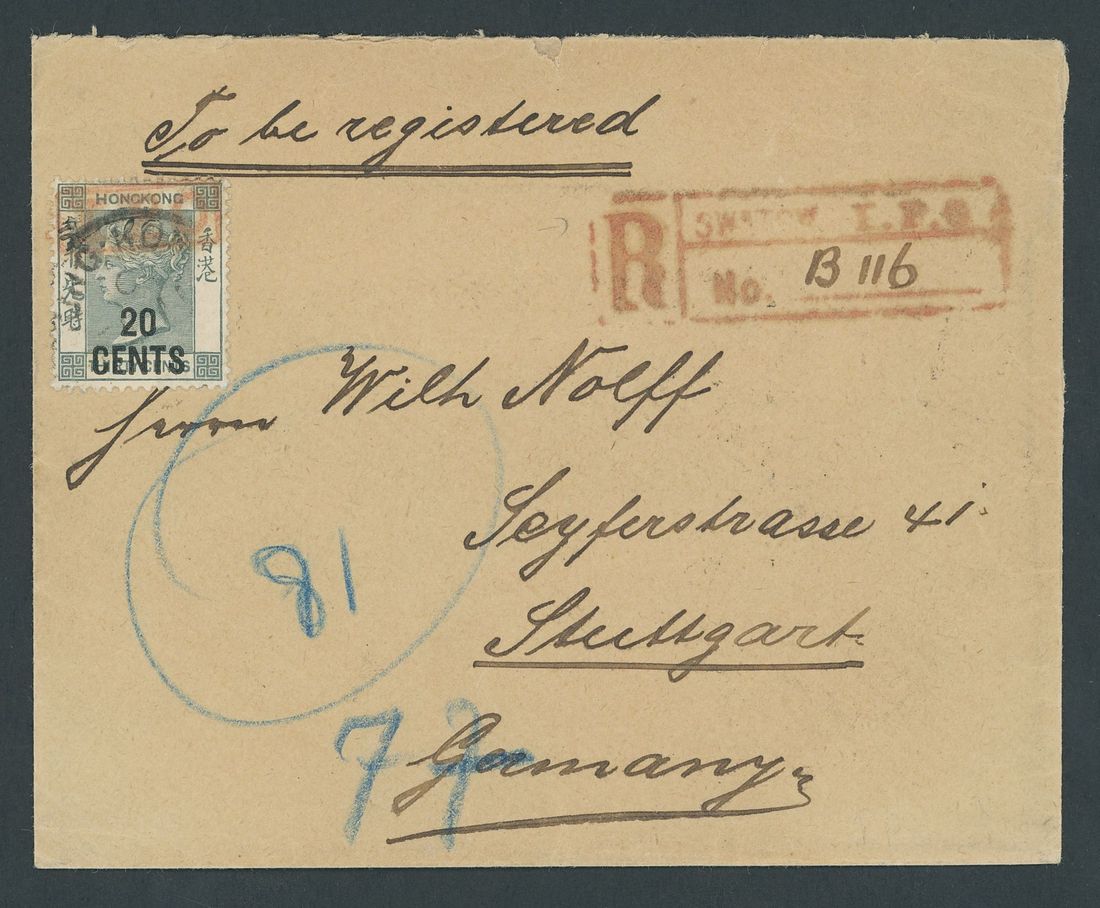 To be registered
HONGKONG
香港
20
CENTS
R
SWATOW I.P.O
No. B 116
Herrn Wilh Nolff
Seyferstrasse 41
Stuttgart
Germany
81
77